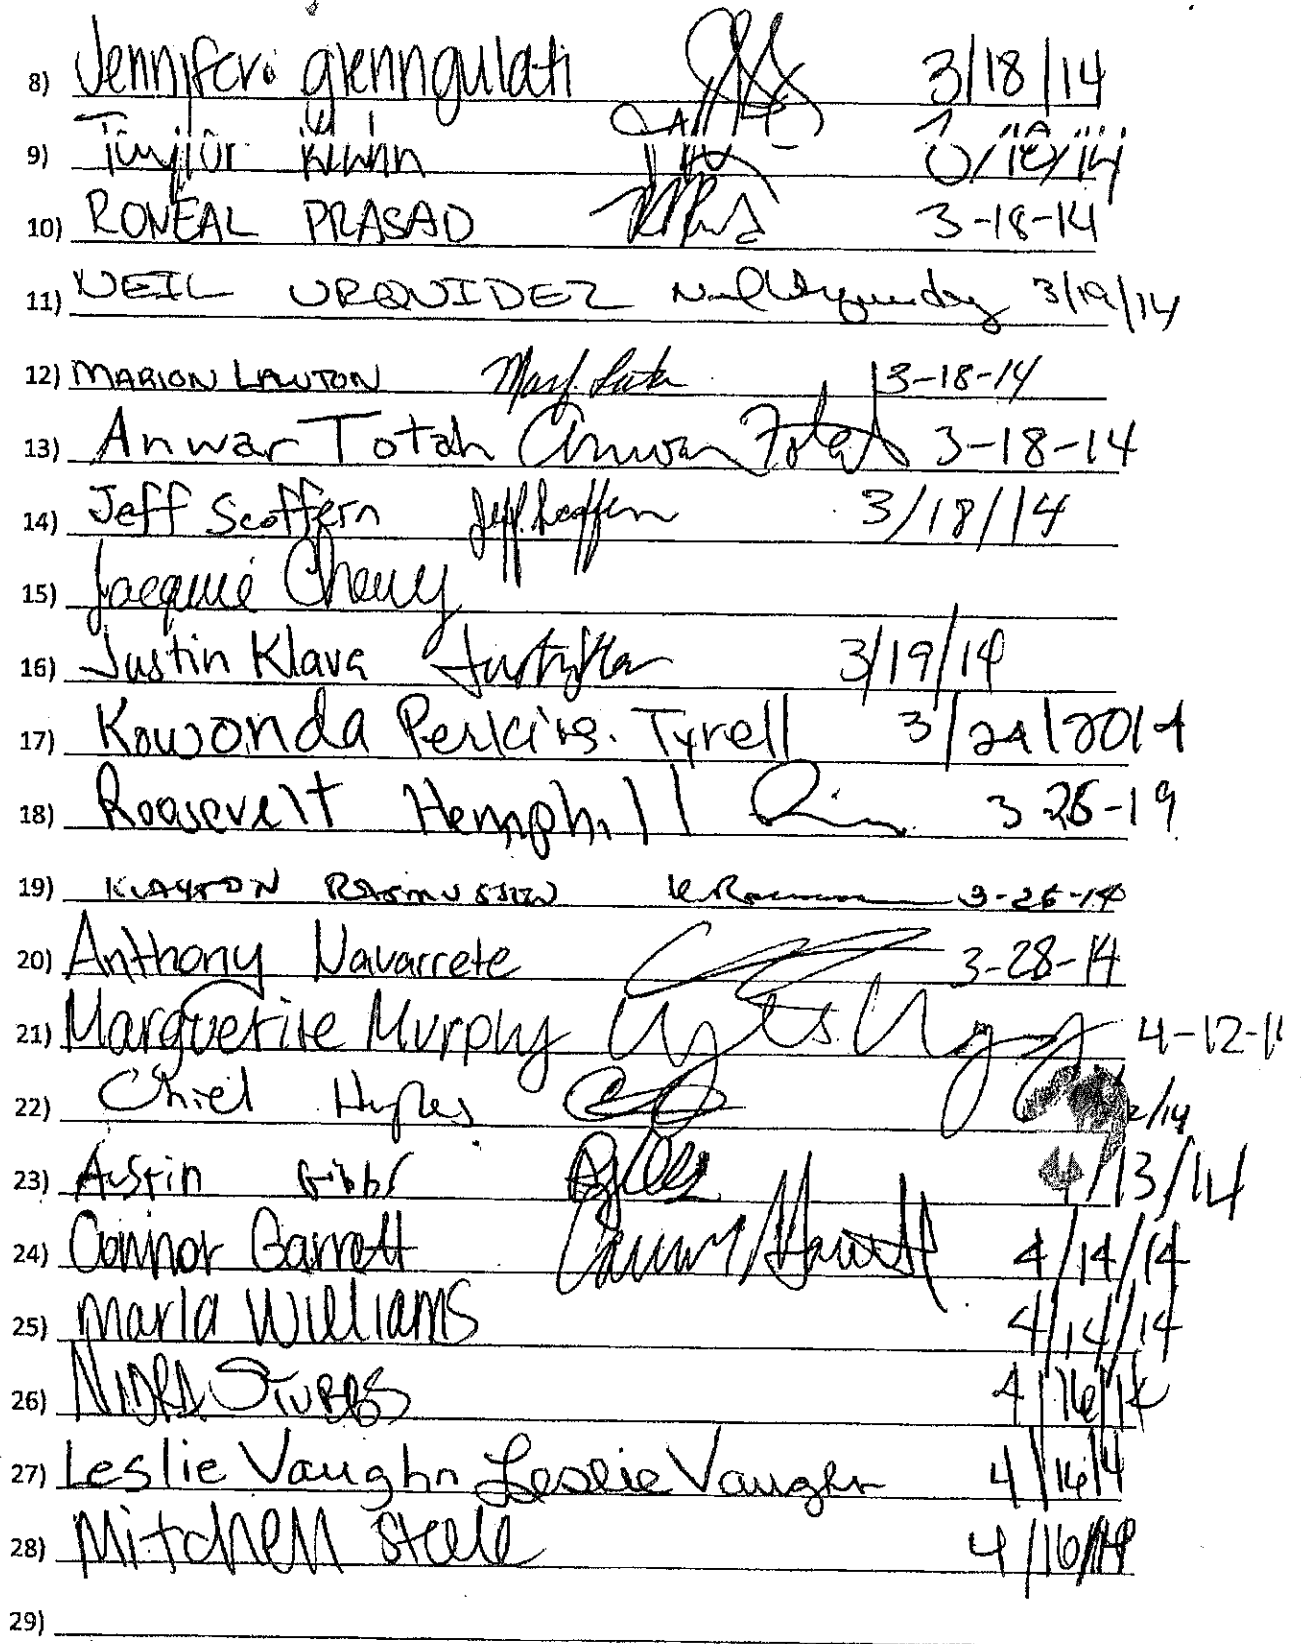 8) Jennifer glenngulati 3/18/14
9) Taylor
10) RONEAL PRASAD 3-18-14
11) NEIL URQUIDEZ Neil Urquidez 3/19/14
12) MARION LAWTON 3-18-14
13) Anwar Totah Anwar Totah 3-18-14
14) Jeff Scoffern Jeff Scoffern 3/18/14
15) Jacquie
16) Justin Klava 3/19/14
17) Kowonda Perkins. Tyrell 3/24/2014
18) Roosevelt Hemphill
19) KLAYTON RASMUSSEN 3-26-14
20) Anthony Navarrete 3-28-14
21) Marguerite Murphy 4-12-1
22) 2/14
23) Austin Gibbs /13/14
24) Connor Garrett Connor Garrett 4/14/14
25) Marla Williams 4/14/14
26) STUBBS 4/16/14
27) Leslie Vaughn Leslie Vaughn 4/16/14
28) Mitchell Steele 4/16/14
29)